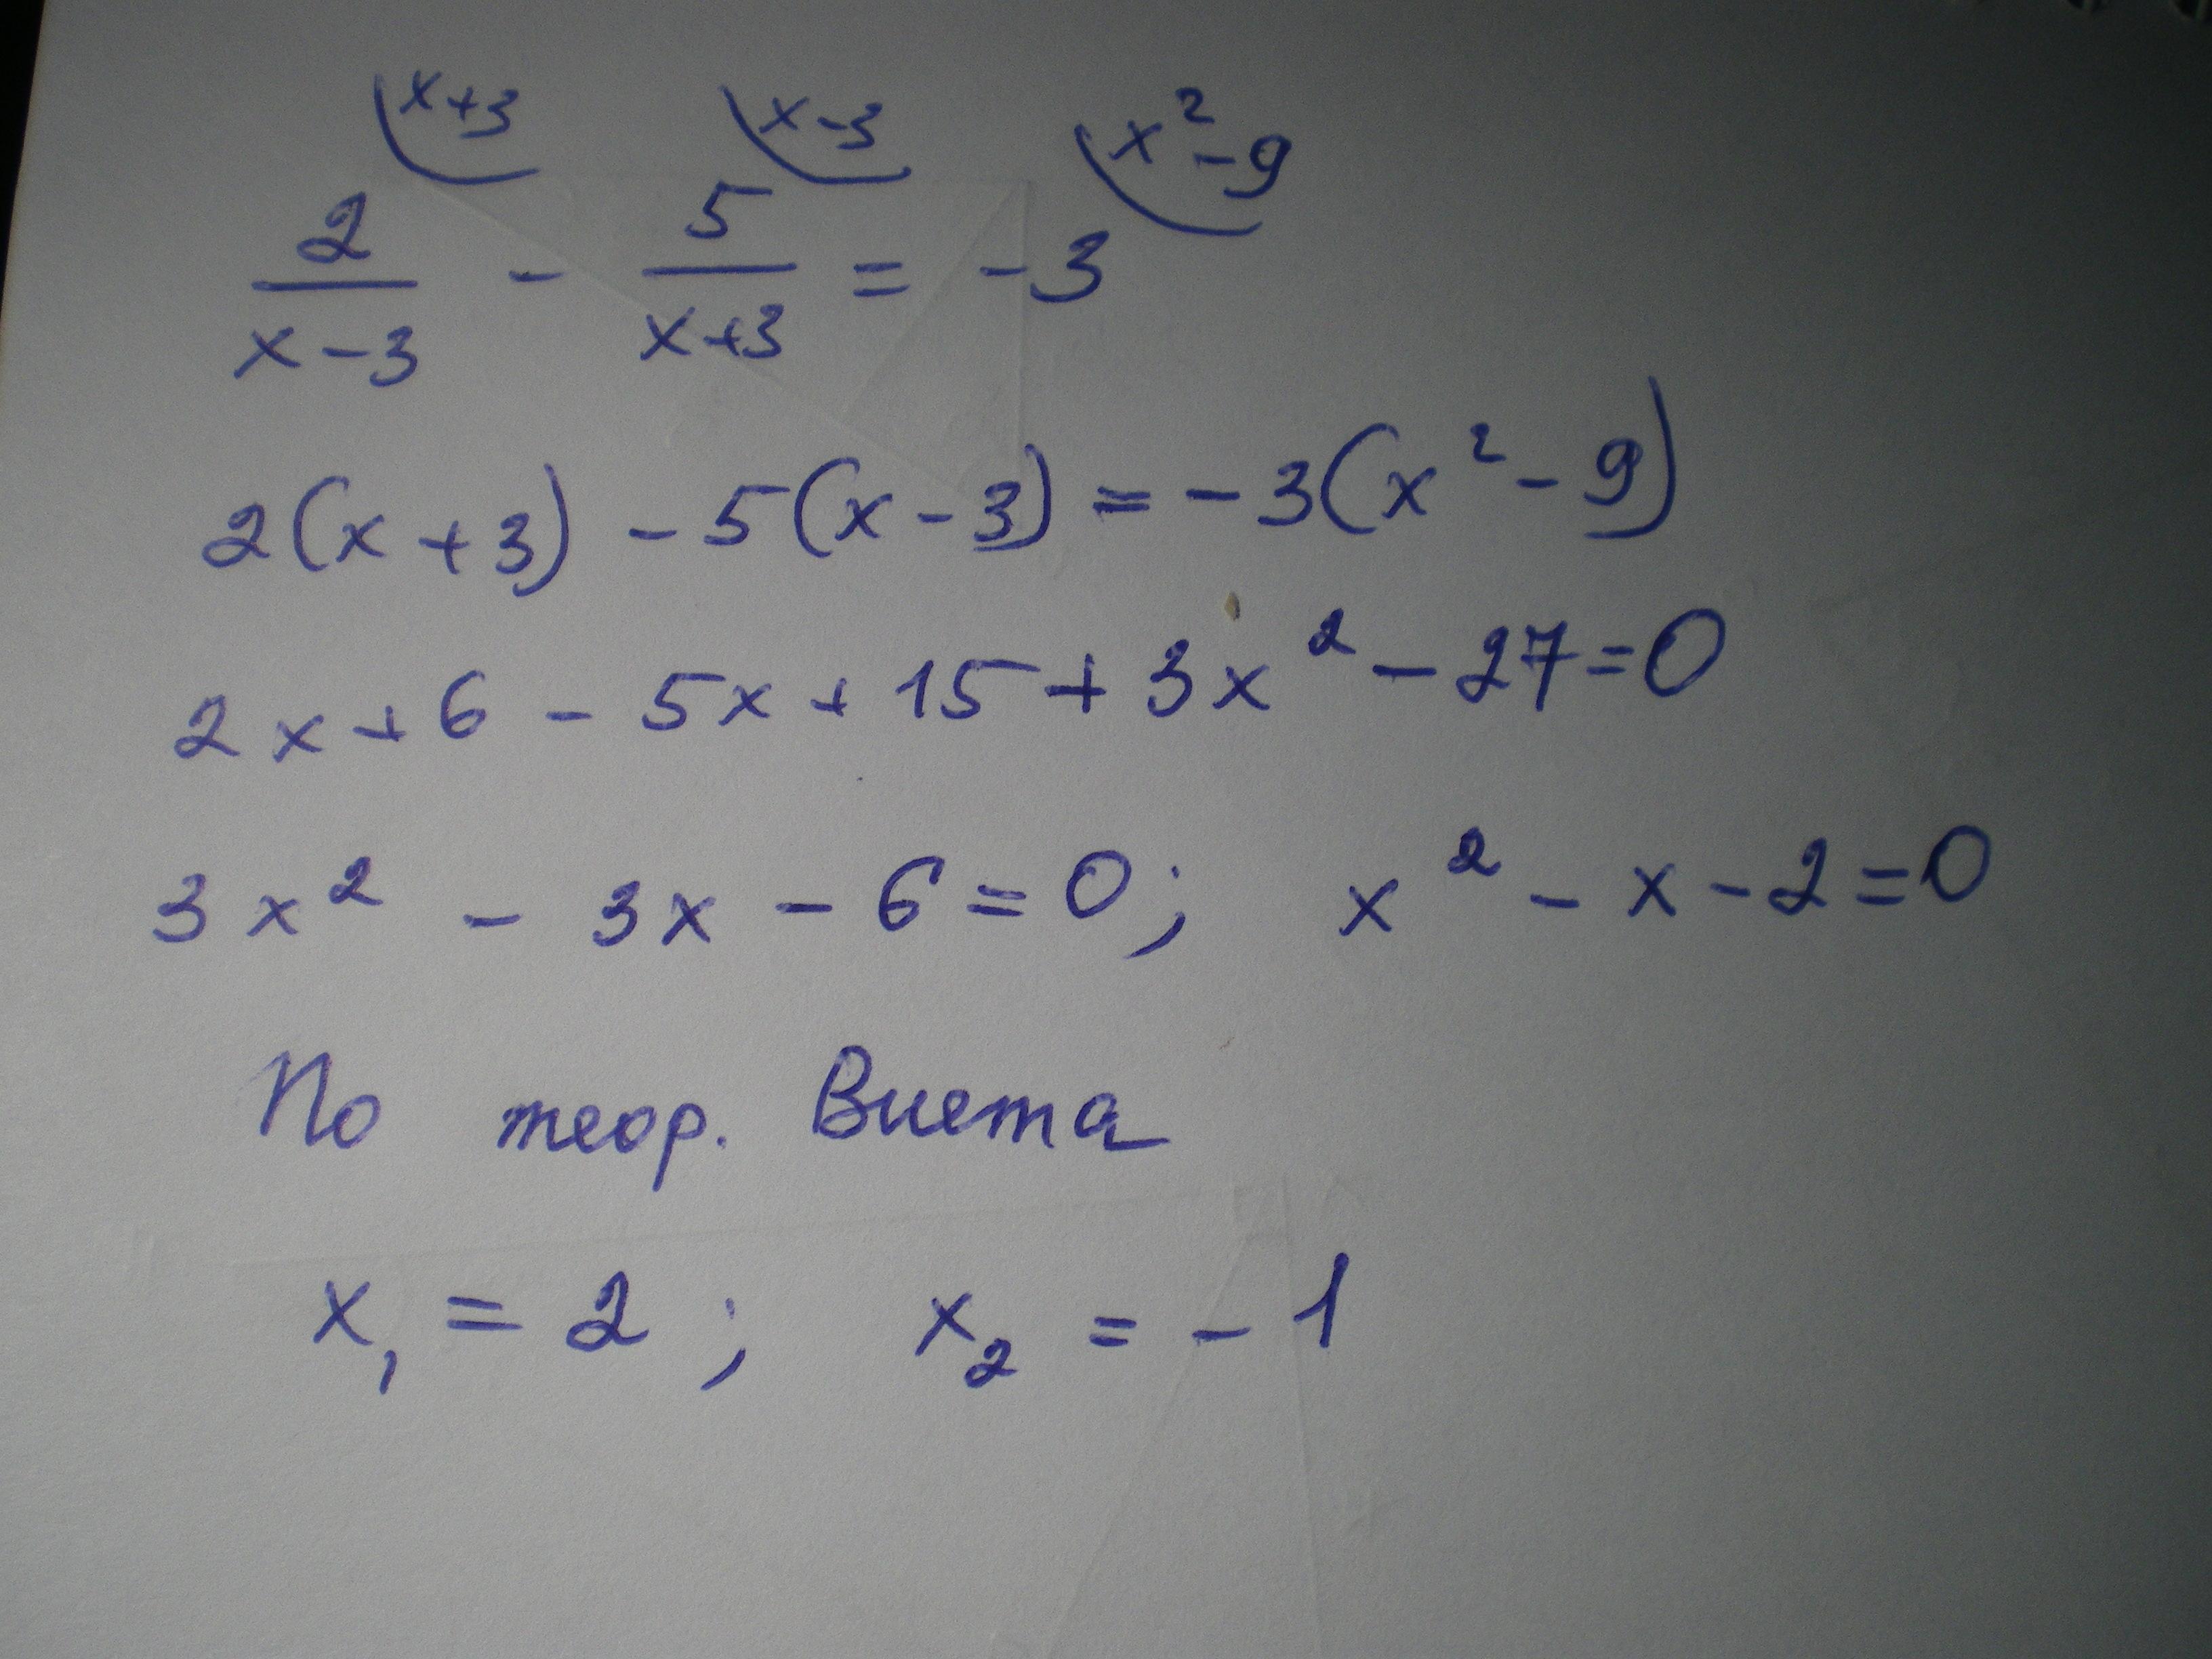 x+3 x-3 x²-9
2/(x-3) - 5/(x+3) = -3
2(x+3) - 5(x-3) = -3(x²-9)
2x+6-5x+15+3x²-27=0
3x²-3x-6=0; x²-x-2=0
По теор. Виета
x₁=2; x₂=-1